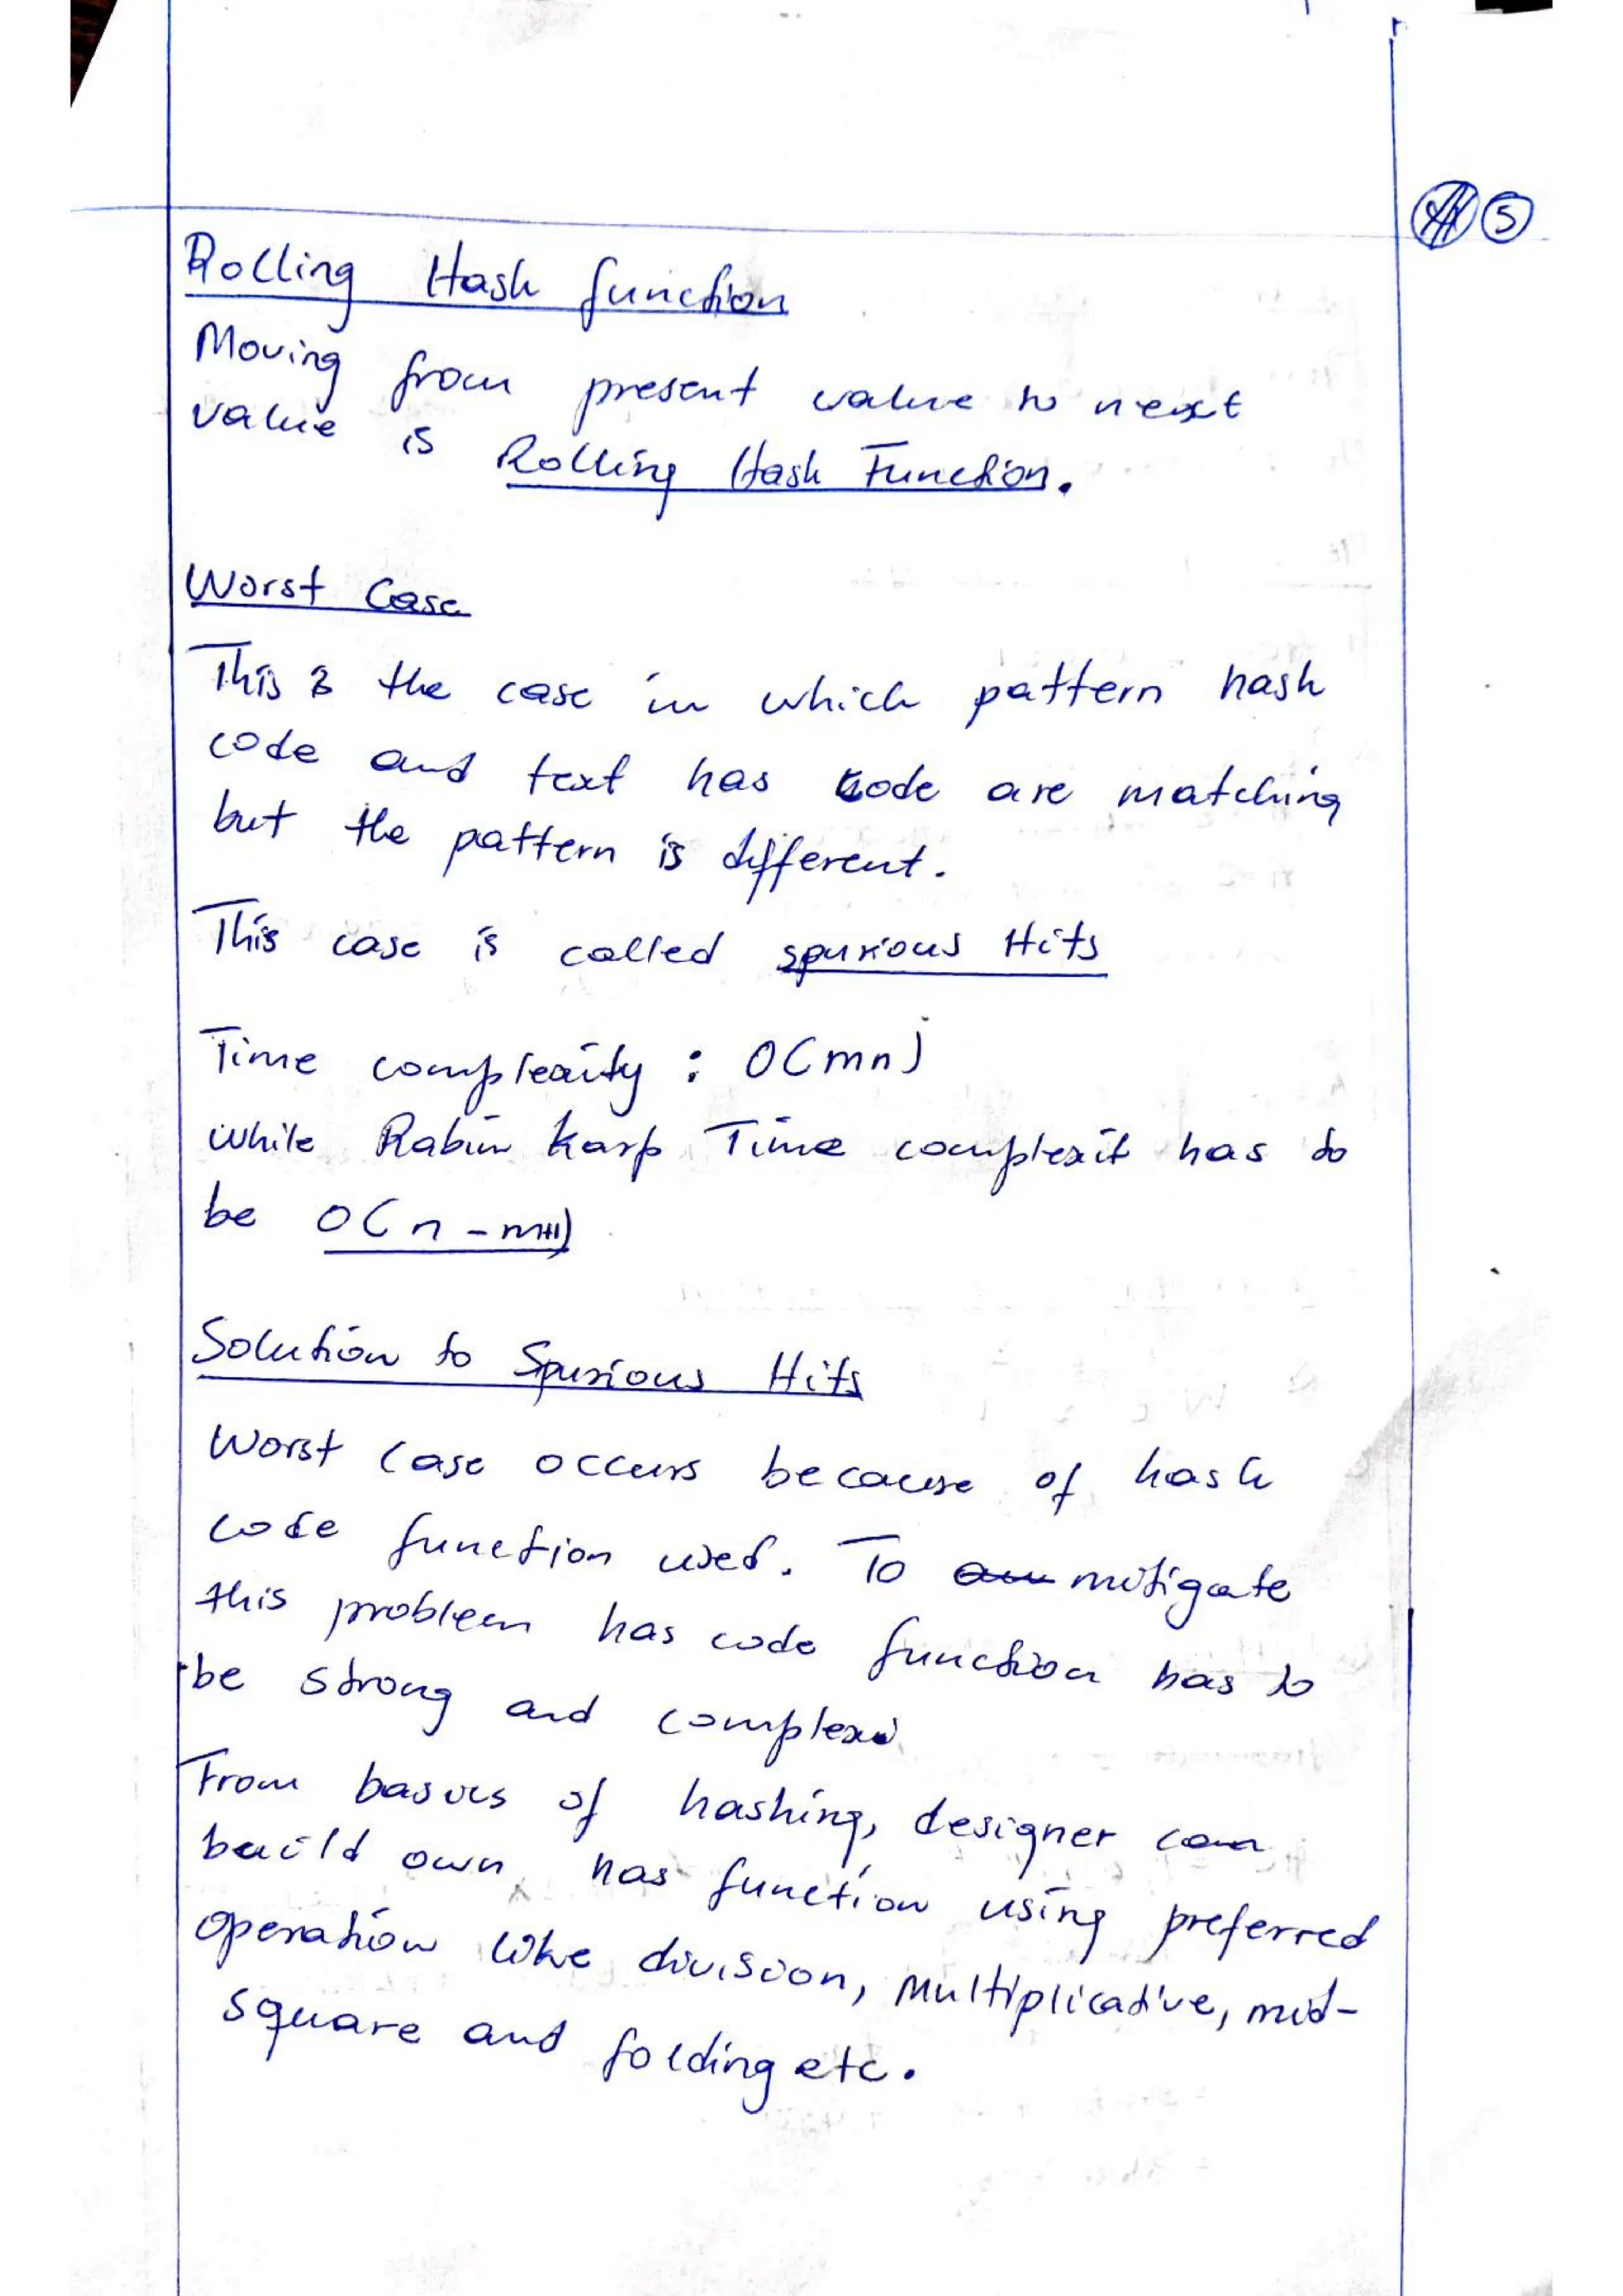 5
Rolling Hash function
Moving from present value to next
value is Rolling Hash Function.
Worst Case
This is the case in which pattern hash
code and text has code are matching
but the pattern is different.
This case is called spurious Hits
Time complexity : O(mn)
while Rabin Karp Time complexit has to
be O(n-m+1)
Solution to Spurious Hits
Worst case occurs because of hash
code function used. To mitigate
this problem has code function has to
be strong and complex.
From basics of hashing, designer can
build own has function using preferred
operation like division, Multiplicative, mid-
square and folding etc.